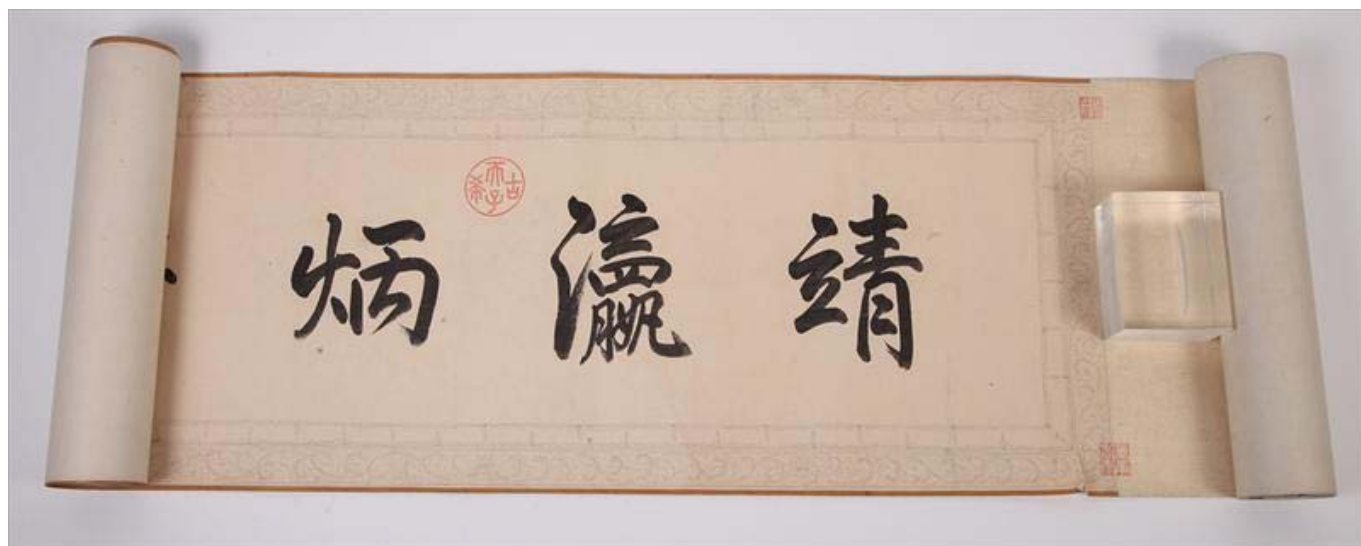 靖瀛炳
古希天子